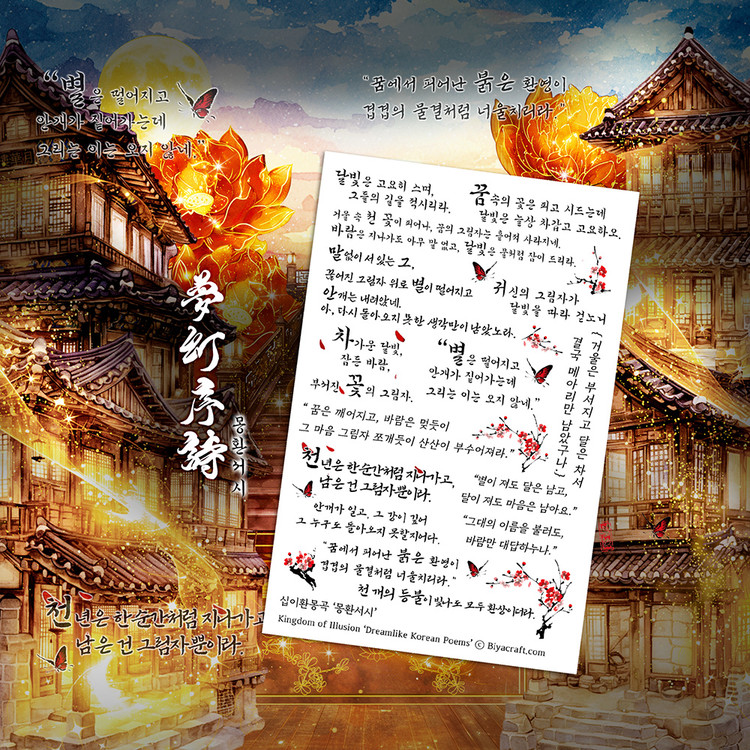 “별은 떨어지고
안개가 짙어가는데
그리는 이는 오지 않네.”
“꿈에서 피어난 붉은 환영이
겹겹의 물결처럼 너울치리라.”
夢幻序詩
몽환서시
천년은 한순간처럼 지나가고,
남은 건 그림자뿐이라.
달빛은 고요히 스며,
그들의 길을 적시리라.
꿈 속의 꽃은 피고 시드는데
달빛은 늘상 차갑고 고요하오.
거울 속 천 꽃이 피어나, 꿈의 그림자는 흩어져 사라지네.
바람은 지나가도 아무 말 없고, 달빛은 물처럼 잠이 드리라.
말없이 서 있는 그,
끊어진 그림자 위로 별이 떨어지고
안개는 내려앉네.
아, 다시 돌아오지 못한 생각만이 남았노라.
귀신의 그림자가
달빛을 따라 걷노니
(거울은 부서지고 달은 차서
결국 메아리만 남았구나)
차가운 달빛,
잠든 바람,
부러진 꽃의 그림자.
“별은 떨어지고
안개가 짙어가는데
그리는 이는 오지 않네.”
“꿈은 깨어지고, 바람은 멎듯이
그 마음 그림자 쪼개듯이 산산이 부수어져라.”
천년은 한순간처럼 지나가고,
남은 건 그림자뿐이라.
“별이 져도 달은 남고,
달이 져도 마음은 남아요.”
안개가 일고, 그 강이 깊어
그 누구도 돌아오지 못할지어다.
“그대의 이름을 불러도,
바람만 대답하누나.”
“꿈에서 피어난 붉은 환영이
겹겹의 물결처럼 너울치리라.”
천 개의 등불이 빛나도 모두 환상이더라.
십이환몽곡 ‘몽환서시’
Kingdom of Illusion ‘Dreamlike Korean Poems’ ⓒ Biyacraft.com